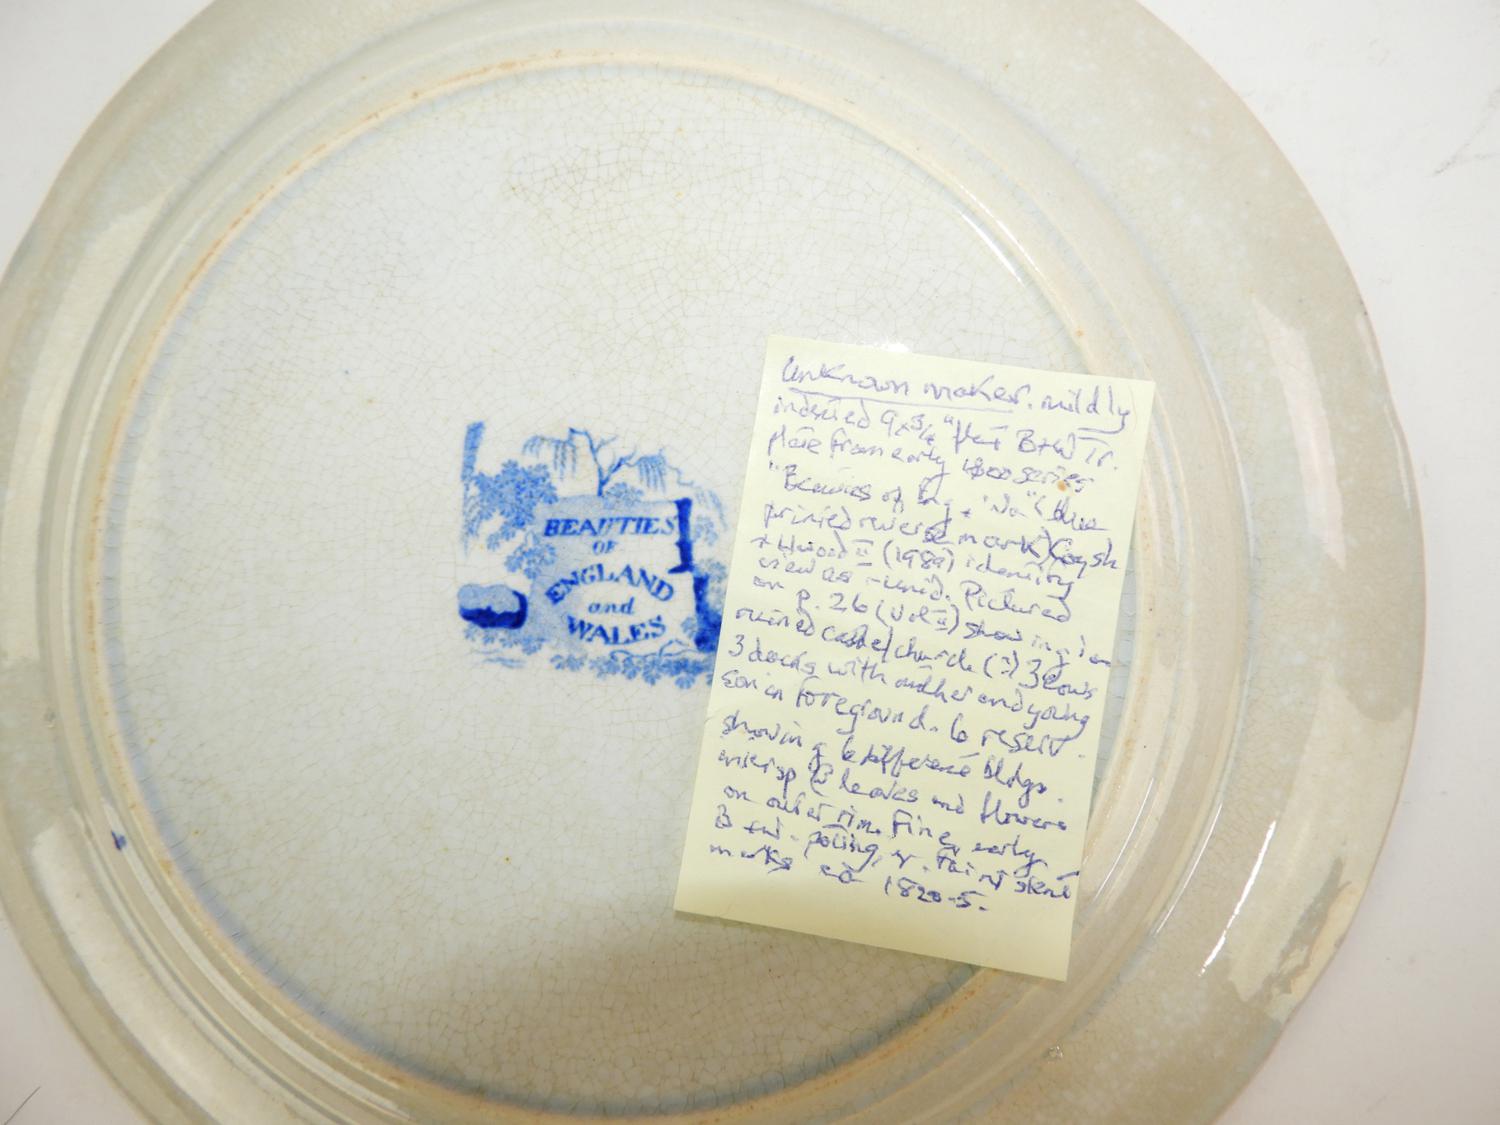 BEAUTIES
OF
ENGLAND
and
WALES
Unknown maker. mildly
indented 9 3/4" flat B+W Tr.
plate from early 1800 series
"Beauties of Eng. + Wa" (blue
printed reverse mark) Coysh
+ II (1989) identify
view as Pictured
on p. 26 (Vol II) showing
ruined castle/church (?) 3 cows
3 ducks with mother and young
son in foreground. 6 reserv.
showing 6 different bldgs.
intersp leaves and flowers
on outer rim. Fine, early
B + W. potting, faint stilt
marks ca 1820-5.